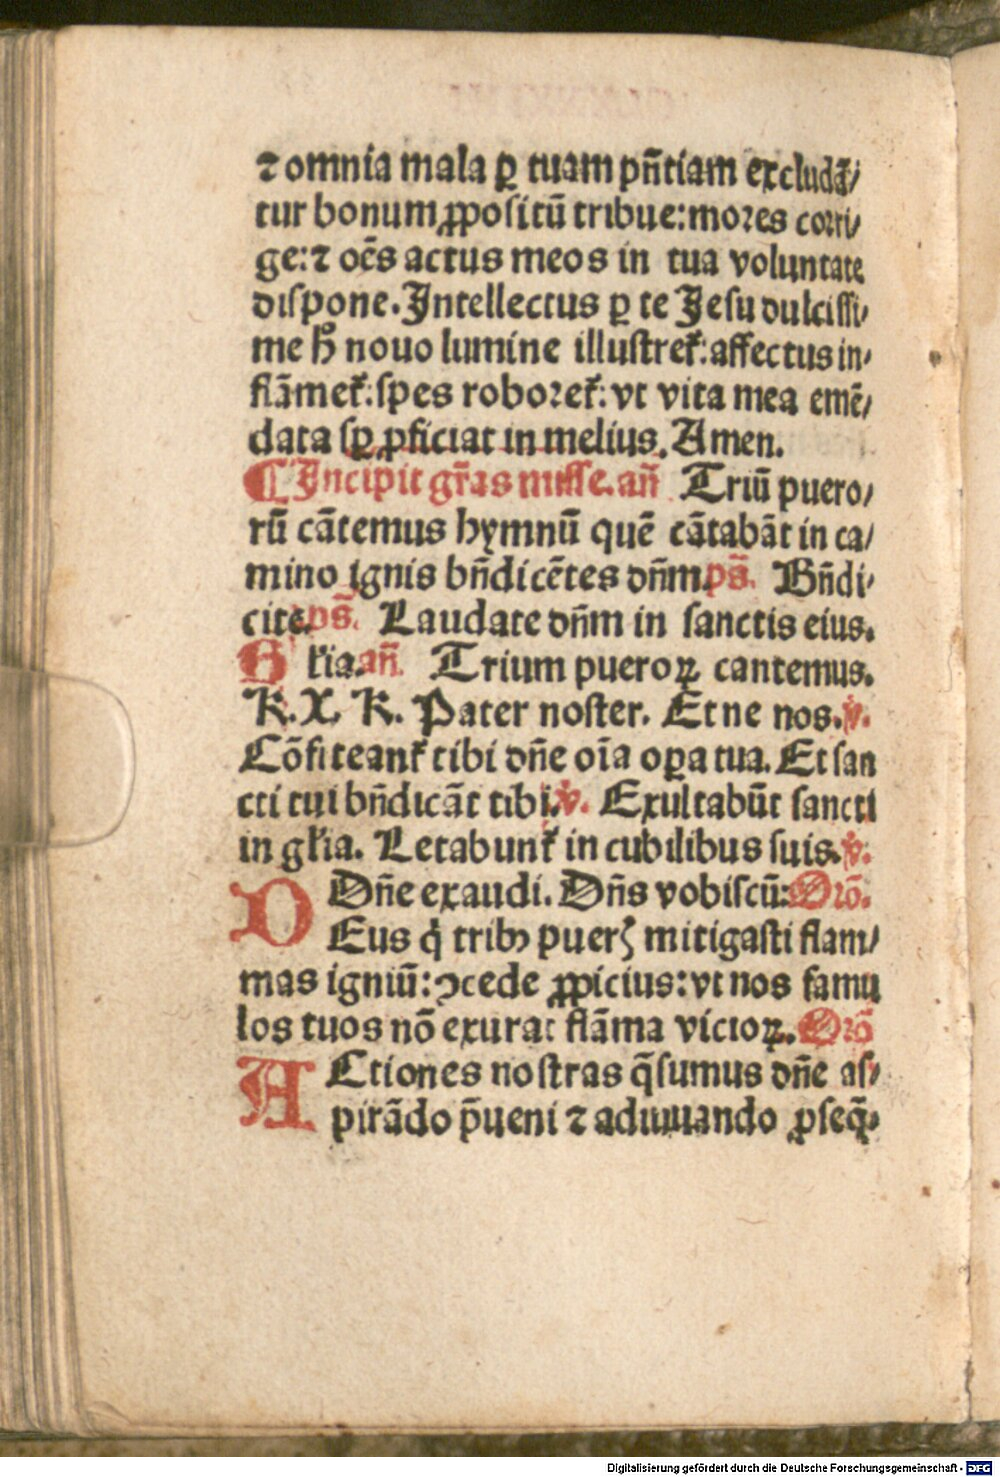 ⁊ omnia mala ꝑ tuam pn̄tiam excludā⸗
tur bonum ꝓpositū tribue: mores corri⸗
ge: ⁊ oēs actus meos in tua voluntate
dispone. Intellectus ꝑ te Jesu dulcissi⸗
me h̄ nouo lumine illustret̄: affectus in⸗
flāmet̄: spes roboret̄: vt vita mea emē⸗
data sꝑ ꝓficiat in melius. Amen.
¶ Incipit gr̄as misse. an̄ Triū puero⸗
rū cātemus hymnū quē cātabāt in ca⸗
mino ignis bn̄dicētes dn̄m. ps̄. Bn̄di⸗
cite. ps̄. Laudate dn̄m in sanctis eius.
G kia. an̄. Trium pueroꝝ cantemus.
K. X. K. Pater noster. Et ne nos. ℣.
Cōfiteant̄ tibi dn̄e oīa oꝑa tua. Et san
cti tui bn̄dicāt tibi. ℣. Exultabūt sancti
in gl̄ia. Letabunt̄ in cubilibus suis. ℣.
Dn̄e exaudi. Dn̄s vobiscū: Orō.
DEus q̇ tribꝰ puerꝭ mitigasti flam⸗
mas igniū: ꝯcede ꝓpicius: vt nos famu
los tuos nō exurat flāma vicioꝝ. Orō
ACtiones nostras q̄sumus dn̄e as⸗
pirādo p̄ueni ⁊ adiuuando ꝓseq̄⸗
Digitalisierung gefördert durch die Deutsche Forschungsgemeinschaft - DFG